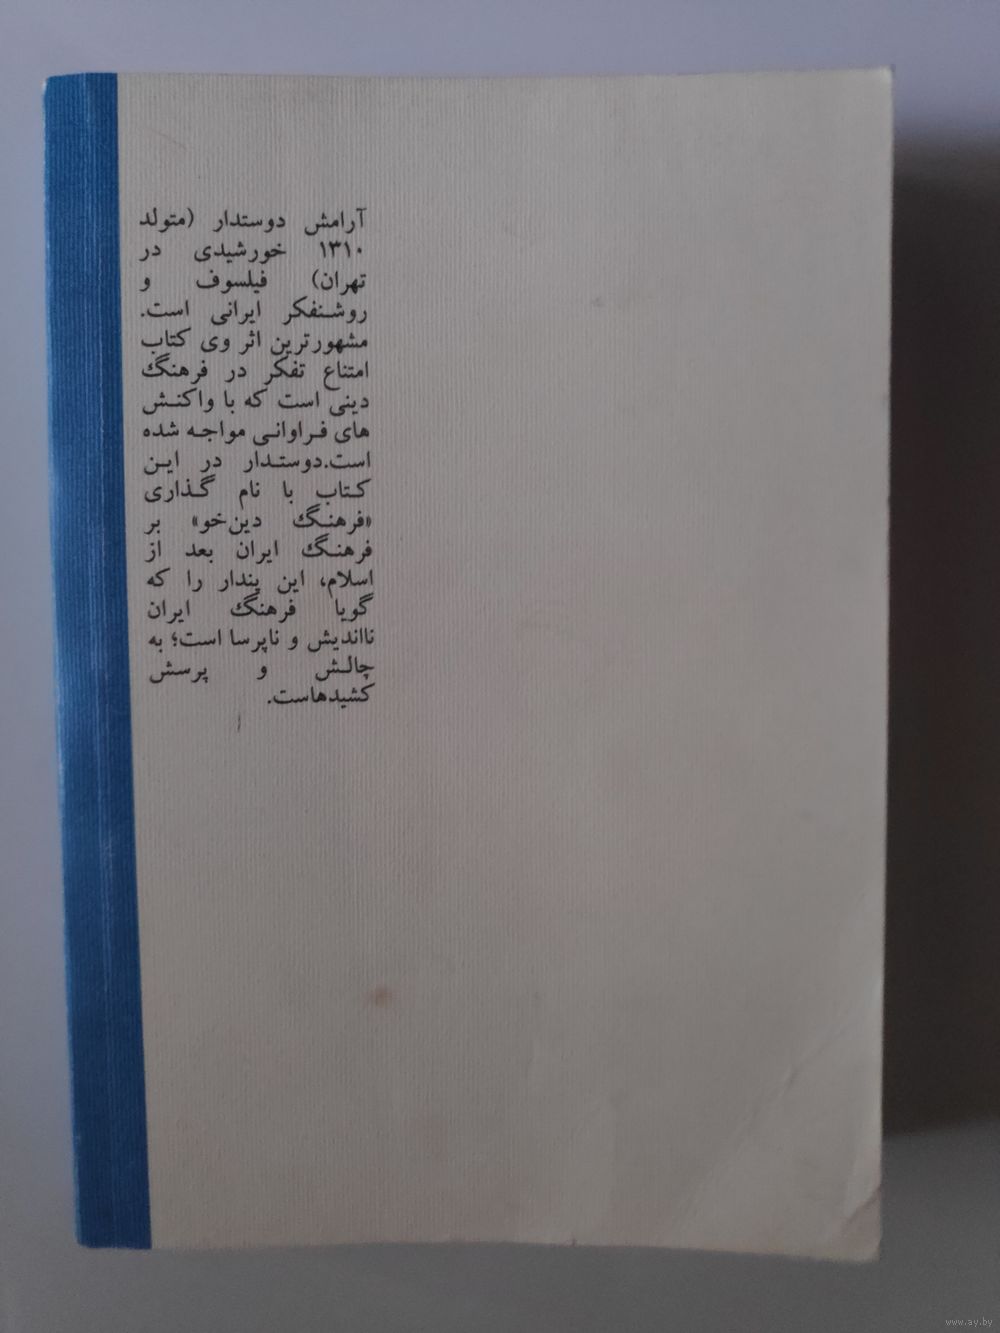 آرامش دوستدار (متولد
۱۳۱۰ خورشیدی در
تهران) فیلسوف و
روشنفکر ایرانی است.
مشهورترین اثر وی کتاب
امتناع تفکر در فرهنگ
دینی است که با واکنش
های فراوانی مواجه شده
است.دوستدار در این
کتاب با نام گذاری
«فرهنگ دین‌خو» بر
فرهنگ ایران بعد از
اسلام، این پندار را که
گویا فرهنگ ایران
نااندیش و ناپرسا است؛ به
چالش و پرسش
کشیدهاست.
www.ay.by